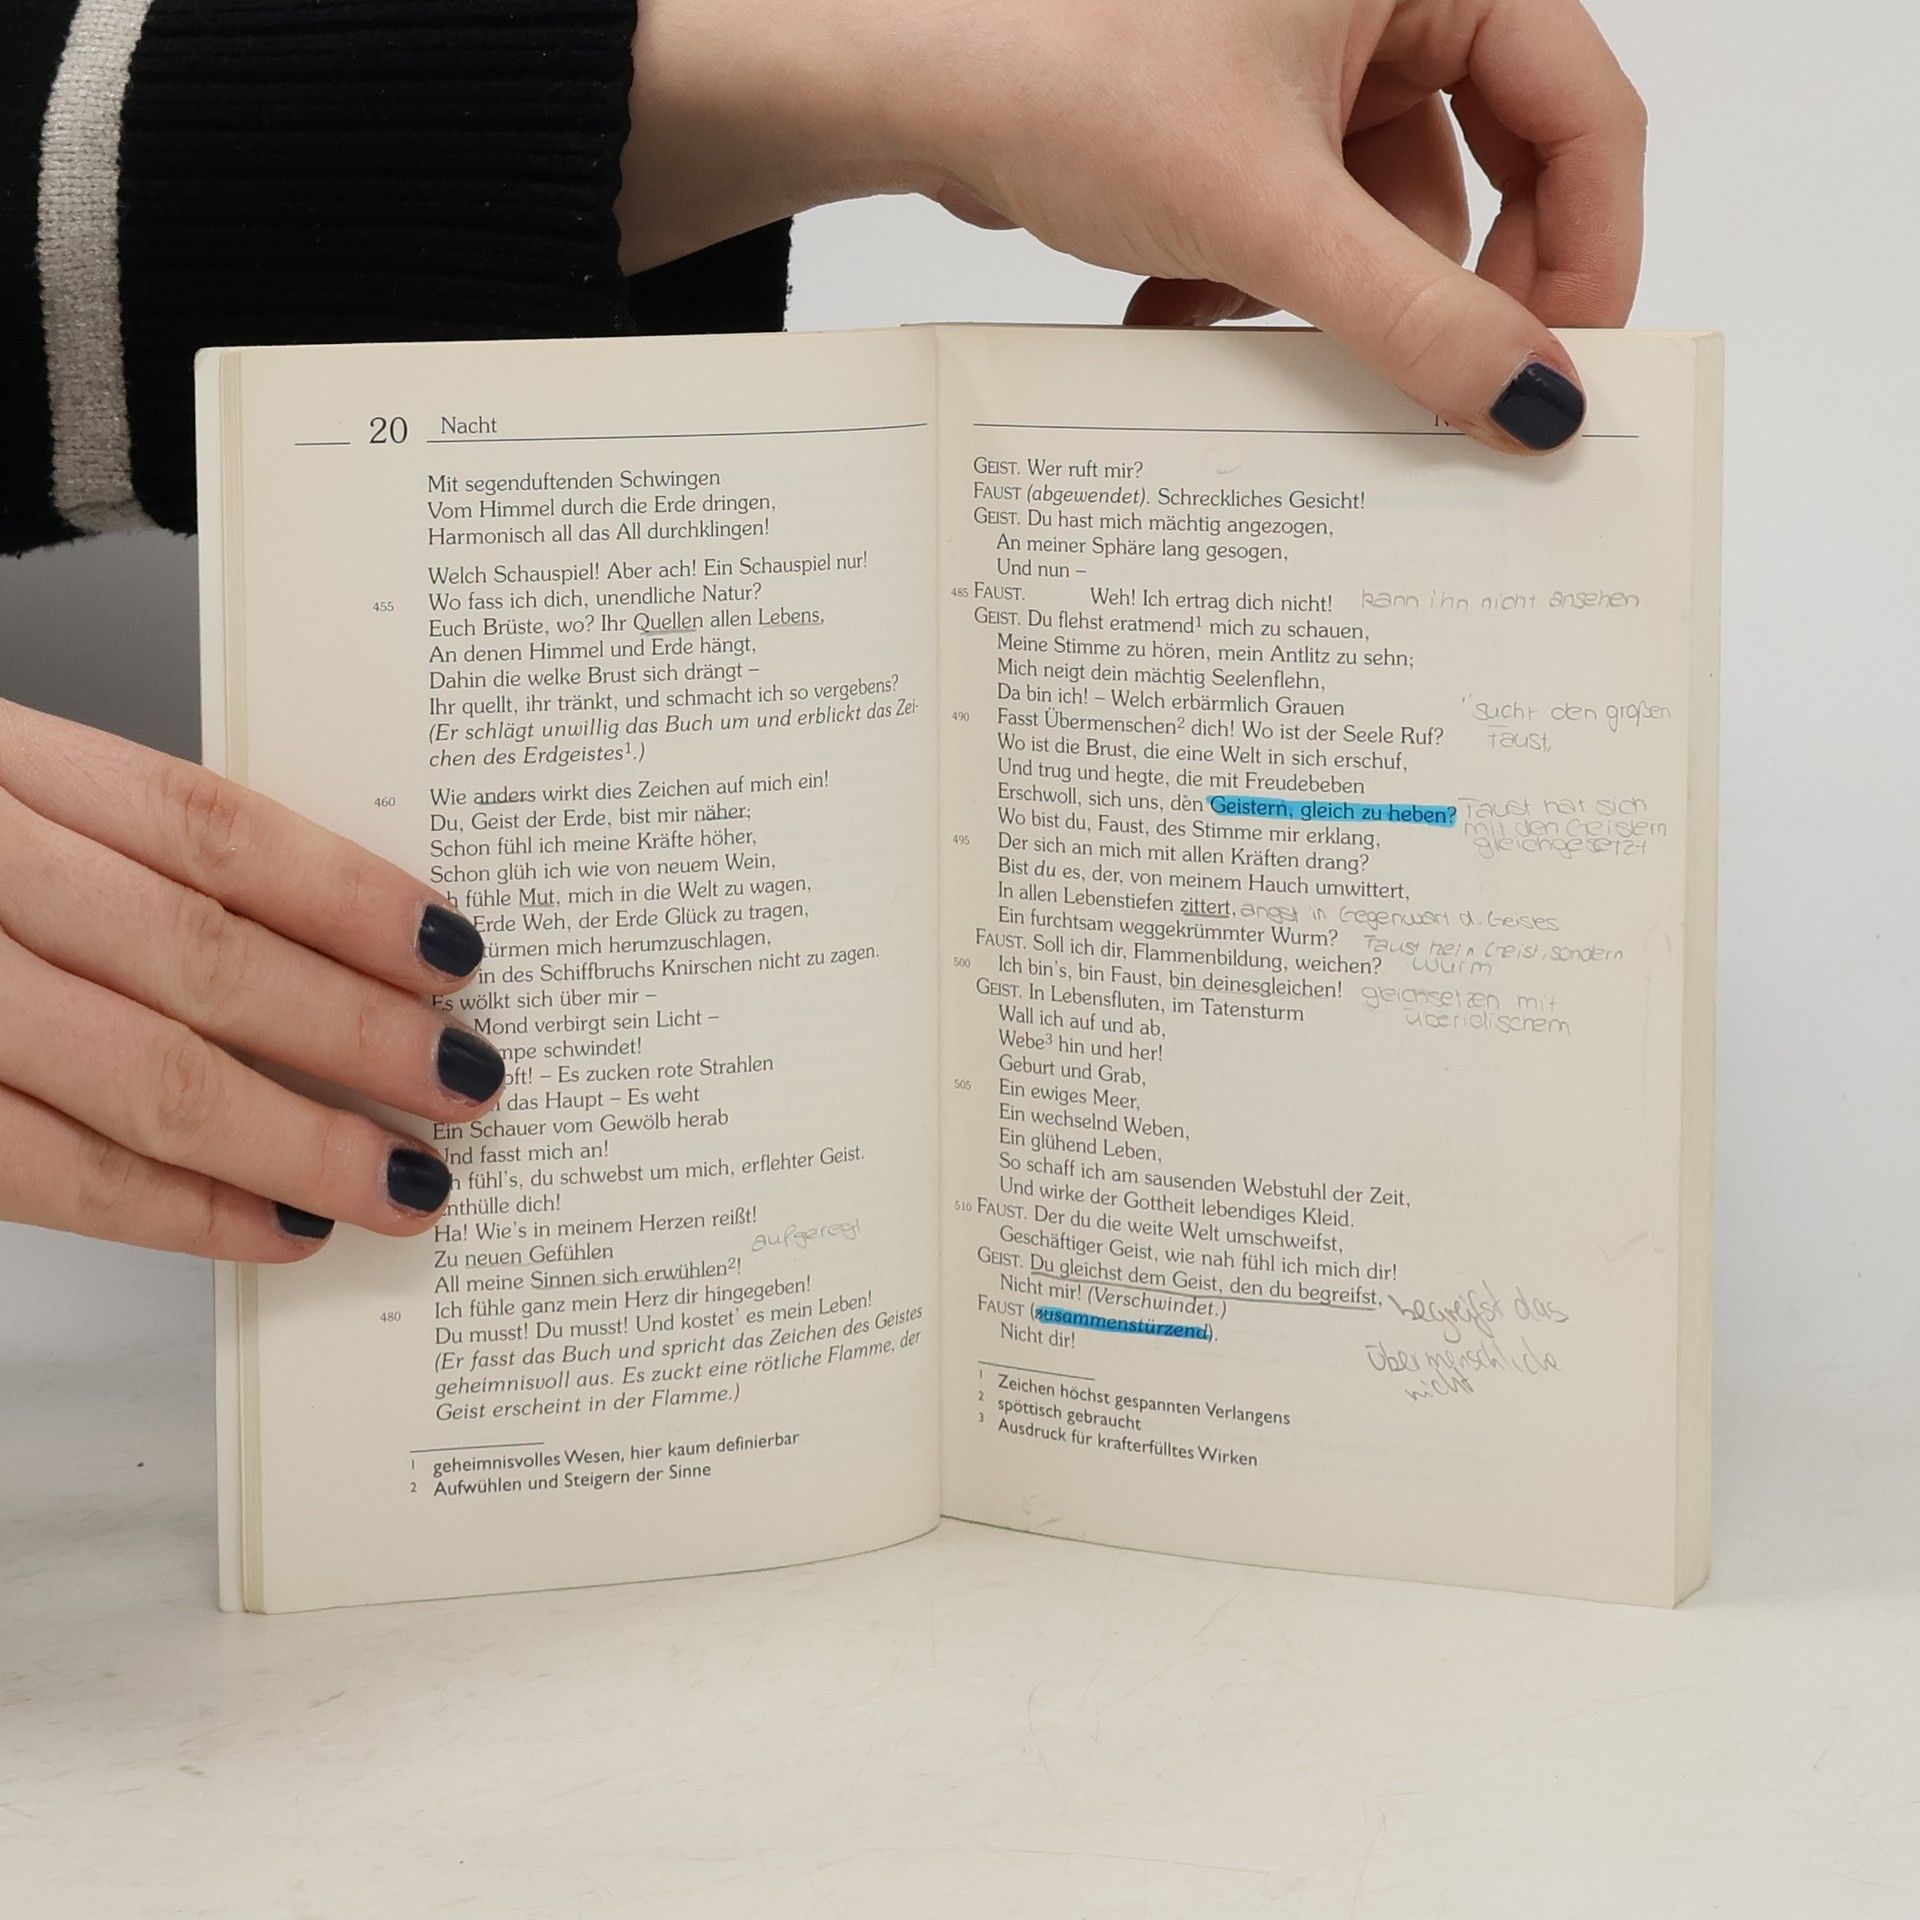 20 Nacht
Mit segenduftenden Schwingen
Vom Himmel durch die Erde dringen,
Harmonisch all das All durchklingen!
Welch Schauspiel! Aber ach! Ein Schauspiel nur!
455 Wo fass ich dich, unendliche Natur?
Euch Brüste, wo? Ihr Quellen allen Lebens,
An denen Himmel und Erde hängt,
Dahin die welke Brust sich drängt –
Ihr quellt, ihr tränkt, und schmacht ich so vergebens?
(Er schlägt unwillig das Buch um und erblickt das Zei-
chen des Erdgeistes¹.)
460 Wie anders wirkt dies Zeichen auf mich ein!
Du, Geist der Erde, bist mir näher;
Schon fühl ich meine Kräfte höher,
Schon glüh ich wie von neuem Wein,
fühle Mut, mich in die Welt zu wagen,
Erde Weh, der Erde Glück zu tragen,
türmen mich herumzuschlagen,
in des Schiffbruchs Knirschen nicht zu zagen.
Es wölkt sich über mir –
Mond verbirgt sein Licht –
mpe schwindet!
pft! – Es zucken rote Strahlen
das Haupt – Es weht
Ein Schauer vom Gewölb herab
Und fasst mich an!
h fühl's, du schwebst um mich, erflehter Geist.
nthülle dich!
Ha! Wie's in meinem Herzen reißt!
Zu neuen Gefühlen aufgeregt
All meine Sinnen sich erwühlen²!
Ich fühle ganz mein Herz dir hingegeben!
480 Du musst! Du musst! Und kostet' es mein Leben!
(Er fasst das Buch und spricht das Zeichen des Geistes
geheimnisvoll aus. Es zuckt eine rötliche Flamme, der
Geist erscheint in der Flamme.)
¹ geheimnisvolles Wesen, hier kaum definierbar
² Aufwühlen und Steigern der Sinne
GEIST. Wer ruft mir?
FAUST (abgewendet). Schreckliches Gesicht!
GEIST. Du hast mich mächtig angezogen,
An meiner Sphäre lang gesogen,
Und nun –
485 FAUST. Weh! Ich ertrag dich nicht! kann ihn nicht ansehen
GEIST. Du flehst eratmend¹ mich zu schauen,
Meine Stimme zu hören, mein Antlitz zu sehn;
Mich neigt dein mächtig Seelenflehn,
Da bin ich! – Welch erbärmlich Grauen
490 Fasst Übermenschen² dich! Wo ist der Seele Ruf? sucht den großen
Faust
Wo ist die Brust, die eine Welt in sich erschuf,
Und trug und hegte, die mit Freudebeben
Erschwoll, sich uns, den Geistern, gleich zu heben? Faust hat sich
mit den Geistern
gleichgesetzt
Wo bist du, Faust, des Stimme mir erklang,
495 Der sich an mich mit allen Kräften drang?
Bist du es, der, von meinem Hauch umwittert,
In allen Lebenstiefen zittert, angst in Gegenwart d. Geistes
Ein furchtsam weggekrümmter Wurm? Faust kein Geist, sondern
Wurm
FAUST. Soll ich dir, Flammenbildung, weichen?
500 Ich bin's, bin Faust, bin deinesgleichen! gleichsetzen mit
überirdischem
GEIST. In Lebensfluten, im Tatensturm
Wall ich auf und ab,
Webe³ hin und her!
Geburt und Grab,
505 Ein ewiges Meer,
Ein wechselnd Weben,
Ein glühend Leben,
So schaff ich am sausenden Webstuhl der Zeit,
Und wirke der Gottheit lebendiges Kleid.
510 FAUST. Der du die weite Welt umschweifst,
Geschäftiger Geist, wie nah fühl ich mich dir!
GEIST. Du gleichst dem Geist, den du begreifst, begreifst das
Übermenschliche
nicht
Nicht mir! (Verschwindet.)
FAUST (zusammenstürzend).
Nicht dir!
¹ Zeichen höchst gespannten Verlangens
² spöttisch gebraucht
³ Ausdruck für krafterfülltes Wirken